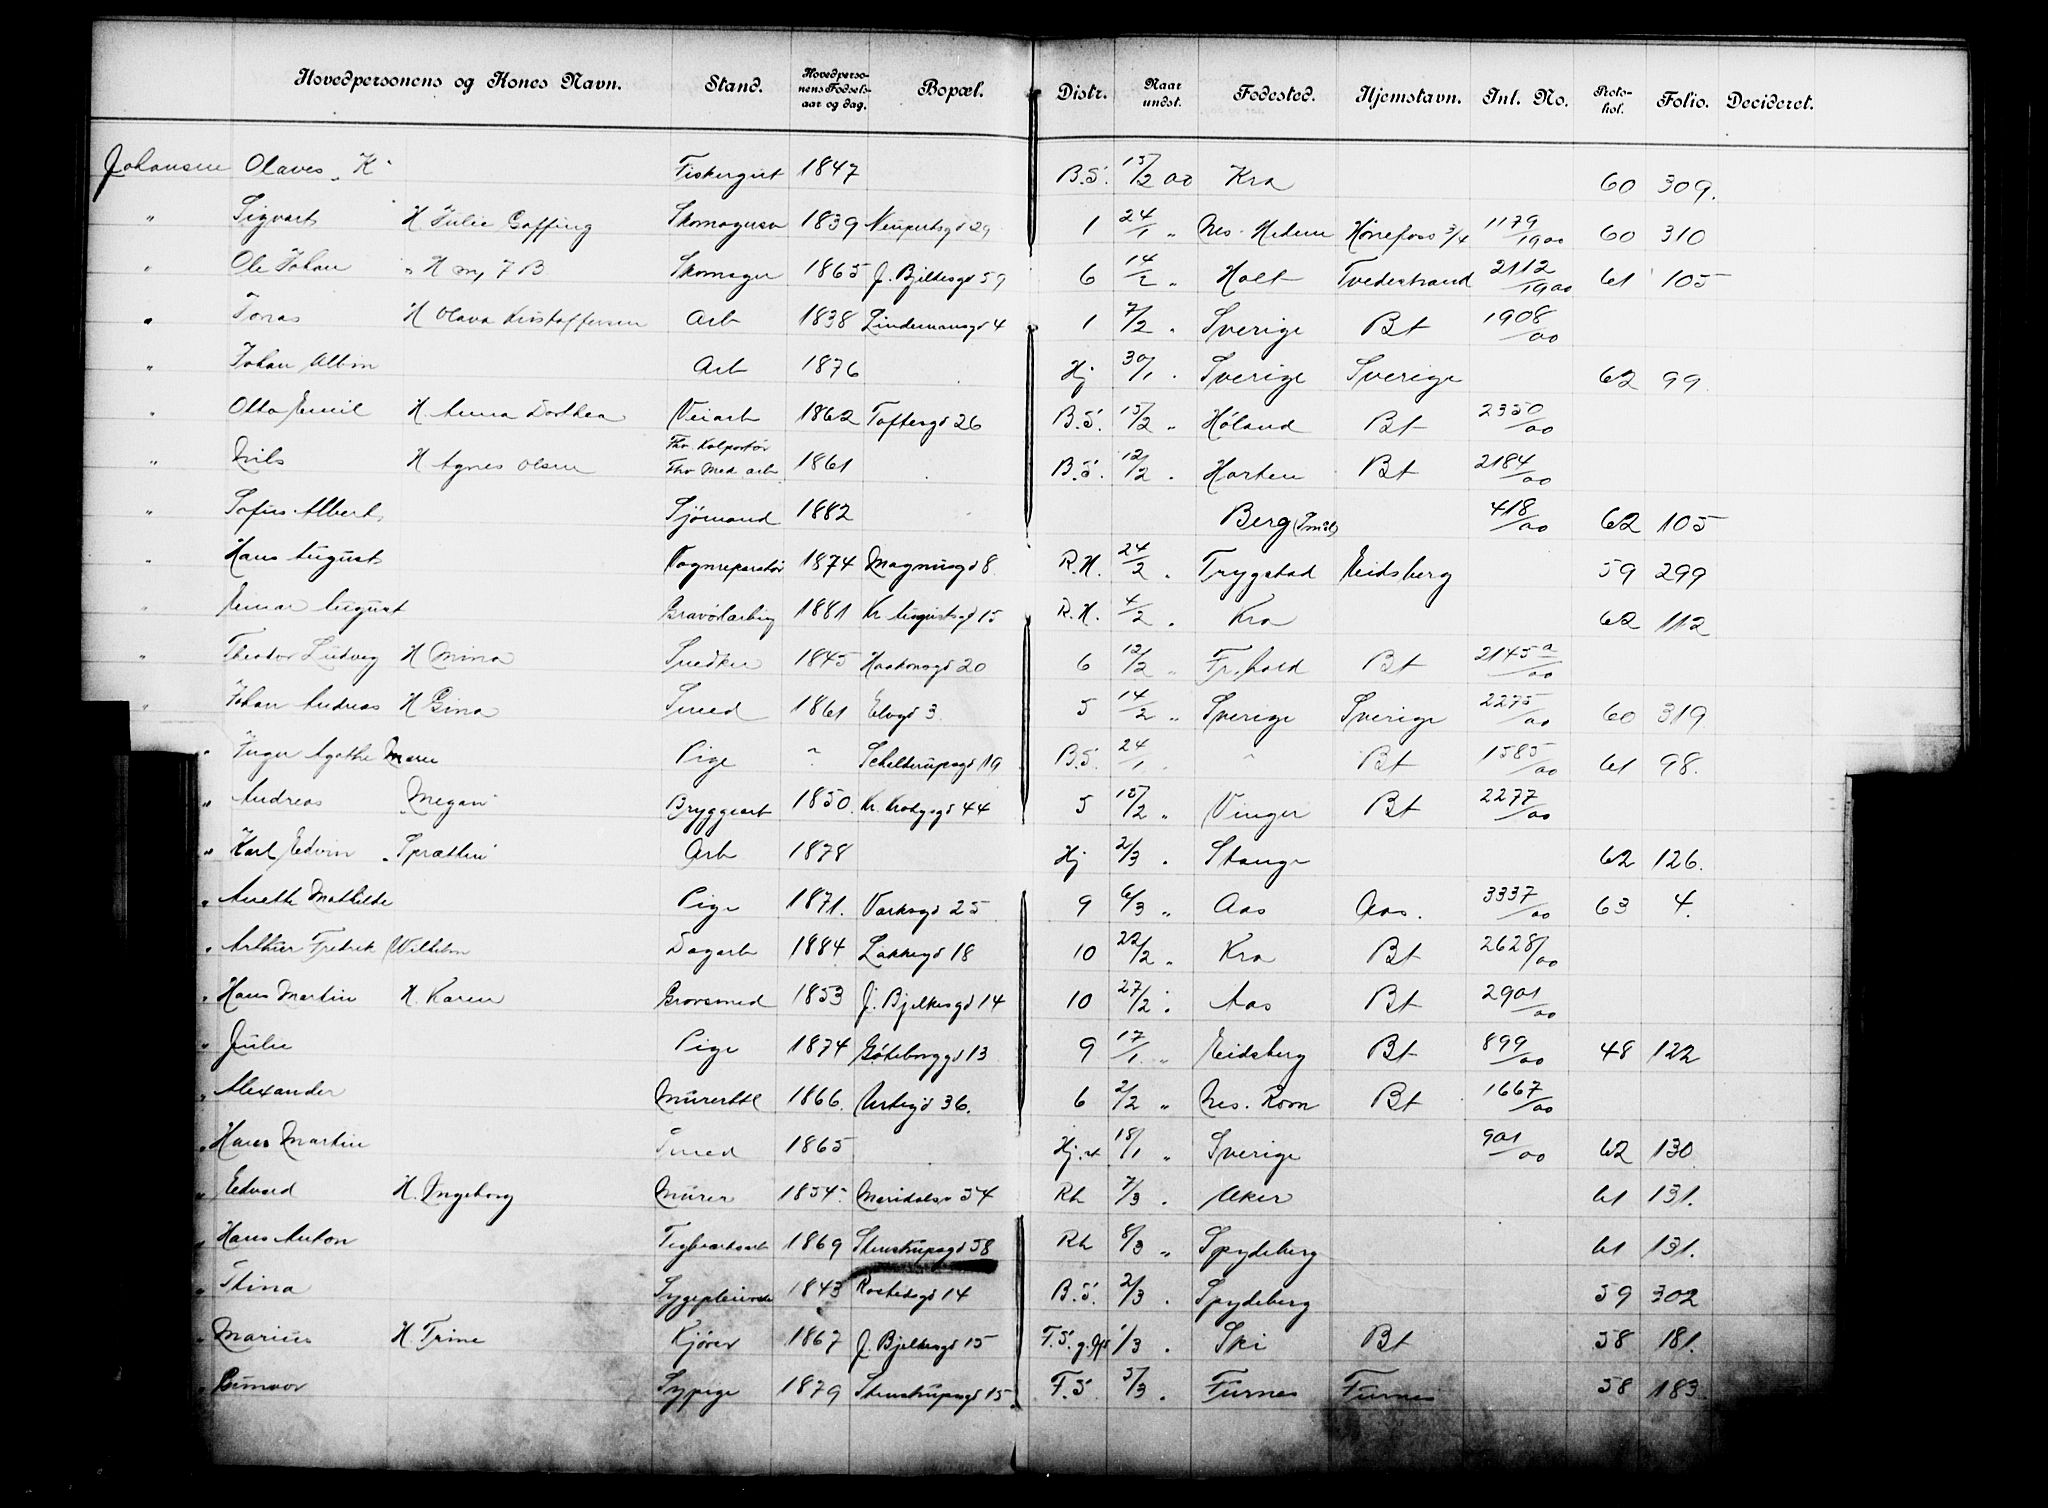 Hovedpersonens og Kones Navn. Stand. Hovedpersonens Fødselsaar og dag. Bopæl. Distr. Naar undst. Fødested. Hjemstavn. Inl. No. Protokol. Folio. Decideret.
Johansen Olaves „K" Fiskergut 1847 B.S. 15/2 00 Kra 60 309.
" Sigvart H Julie Gaffing Skomagersv 1839 Neupertsgd 29 1 24/1 " Nes. Hedem Hønefoss 3/4 1179/1900 60 310
" Ole Johan Skomager 1865 J. Bjelkesgd 59 6 14/2 " Holt Tvedestrand 2112/1900 61 105
" Jonas H Olava Kristoffersen Arb 1838 Lindemansgd 4 1 7/2 " Sverige Bt 1908/00
" Johan Albin Arb 1876 Hj 30/1 " Sverige Sverige 62 99
" Otto Emil H. Anna Dorthea Veiarb 1862 Toftesgd 26 B.S. 15/2 " Høland Bt 2350/00
" Nils H Agnes Olsen Fhv Kolportør Fhv Med. arb 1861 B.S. 12/2 " Horten Bt 2184/00
" Sofus Albert Sjømand 1882 Berg (Smål) 418/00 62 105
" Hans August Vognreparatør 1874 Magnusgd 8 R.H. 24/2 " Trygstad Eidsberg 59 299
" Einar August Gravørlærling 1881 Kr Augustsgd 15 R.H. 4/2 " Kra 62 112
" Theodor Ludvig H Mina Snedker 1845 Haakonsgd 20 6 12/2 " Fr.hald Bt 2145 a/00
" Johan Andreas H Gina Smed 1861 Elvegd 3. 5 14/2 " Sverige Sverige 2275/00 60 319
" Inger Agathe Marie Pige " Schelterupsgd 19 B.S. 24/1 " Bt 1585/00 61 98.
" Andreas „Megan" Bryggearb 1850. Kr. Krohgsgd 44 5 15/2 " Vinger Bt 2277/00
" Karl Edvin „Sprætten" Arb 1878 Hj 2/3 " Stange 62 126.
" Anette Mathilde Pige 1871. Verksgd 25 9 6/3 " Aas Aas. 3337/00 63 4.
" Arthur Fredrik Wilhelm Dagarb 1884 Lakkegd 18 10 22/2 " Kra Bt 2628/00
" Hans Martin H. Karen Grovsmed 1853 J. Bjelkesgd 14 10 27/2 " Aas Bt 2901/00
" Julie Pige 1874 Göteborggd 13 9 17/1 " Eidsberg Bt 899/00 48 122
" Alexander Murerhtl 1866. Urtegd 36. 6 2/2 " Nes. Rom Bt 1667/00
" Hans Martin Smed 1865 Hj. 18/1 " Sverige 901/00 62 130
" Edvard H. Ingeborg Murer 1854 Maridalsv 54 Rh 7/3 " Aker 61 131.
" Hans Anton Teglverksarb 1869 Stenstrupsgd 58 Rh 8/3 " Spydeberg 61 131.
" Stina Sygepleierske 1843 Rostedsgd 14 B.S. 2/3 " Spydeberg 59 302
" Marius H. Trine Kjører 1867 J. Bjelkesgd 15 F.S. 1/3 " Ski Bt 58 181.
" Gunvor Sypige 1879 Stenstrupsgd 15 F.S. 5/3 " Furnes Furnes 58 183.